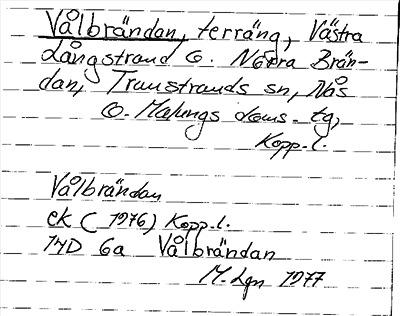 Vålbrändan, terräng, Västra
Långstrand o. Norra Brän-
dan, Transtrands sn, Nås
o. Malungs doms. tg,
Kopp. l.
Vålbrändan
ek (1976) Kopp. l.
14D 6a Vålbrändan
M. Lgn 1977